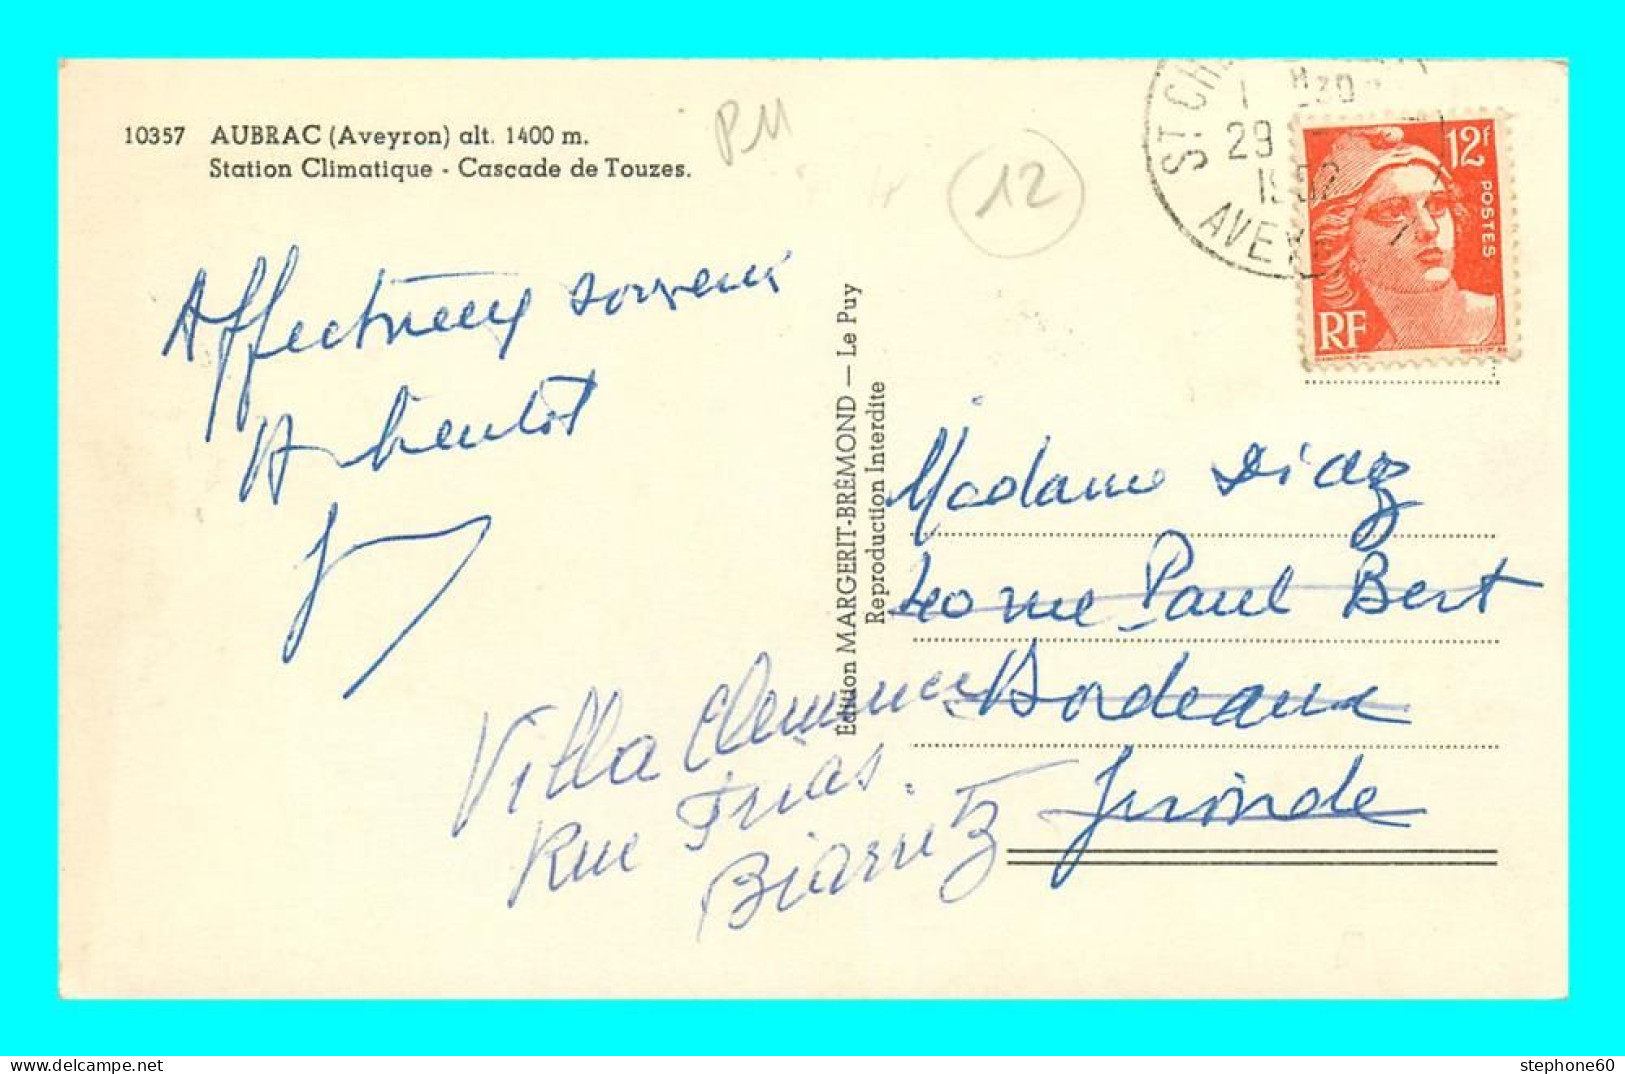 10357 AUBRAC (Aveyron) alt. 1400 m.
Station Climatique - Cascade de Touzes.
PM
12
ST CH
1 H30
29
1952
AVEY
12f
POSTES
RF
Affectueux souvenir
A bientôt
Édition MARGERIT-BRÉMOND — Le Puy
Reproduction Interdite
Madame Diaz
rue Paul Bert
Bordeaux
Gironde
Villa
Rue Frias.
Biarritz
stephone60